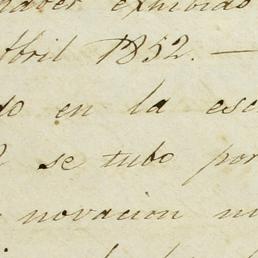 haver exhibido
Abril 1852. —
do en la esc
se tubo por
novacion ni